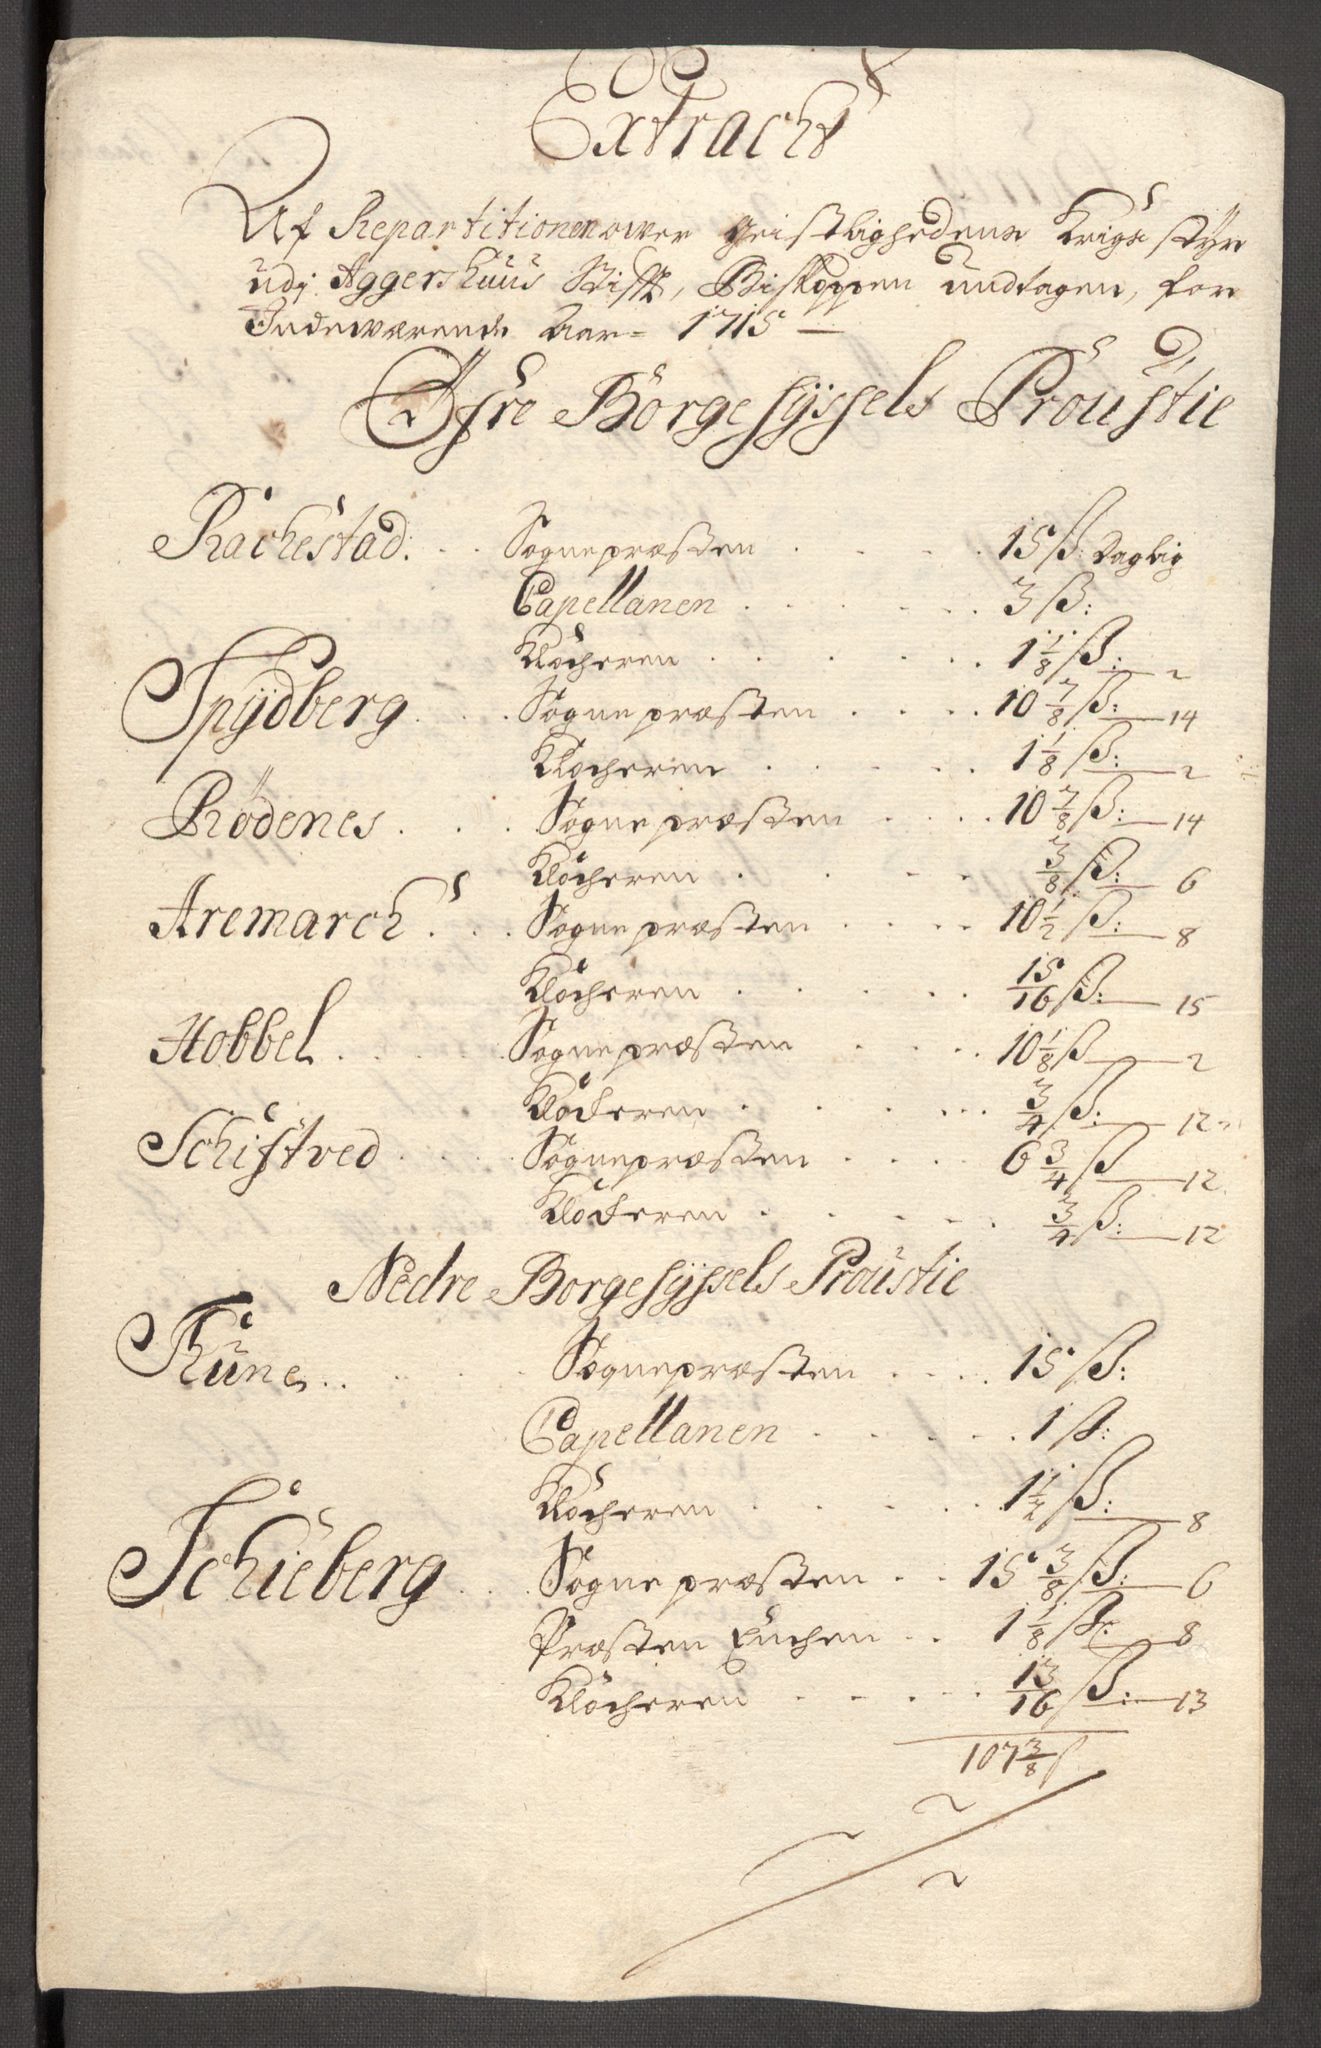 Extracht
Af Repartitionen over Geistlighedens Krigs styr
udj Aggershuus Stifft, Biskoppen undtagen, for
Indeværende Aar = 1715
Øfre Borgesÿssels Proustie
Rachestad. Sognepræsten 15 ß: Daglig
Capellanen 3 ß:
Klocheren 1 1/8 ß: 2
Spÿdberg Sognepræsten 10 7/8 ß: 14
Klocheren 1 1/8 ß: 2
Rødenes Sognepræsten 10 7/8 ß: 14
Klocheren 3/8 ß: 6
Aremarch Sognepræsten 10 1/2 ß: 8
Klocheren 15/16 ß: 15
Hobbel Sognepræsten 10 1/8 ß 2
Klockeren 3/4 ß: 12
Schiftved Sognepræsten 6 3/4 ß 12
Klockeren 3/4 ß: 12
Nedre Borgesÿssels Proustie
Rune Sognepræsten 15 ß:
Capellanen 1 ß:
Klocheren 1 1/2 ß: 8
Schieberg Sognepræsten 15 3/8 ß: 6
Præsten Enchen 1 1/8 ß: 8
Klocheren 13/16 ß: 13
107 3/8 ß